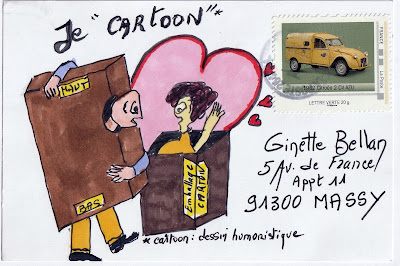 Je "CARTOON"*
HAUT
BAS
Emballage
CARTON
* cartoon : dessin humoristique
FRANCE
La Poste
1982 Citroën 2 CV AZU
LETTRE VERTE 20 g
Ginette Bellan
5 Av. de France
Appt 11
91300 MASSY